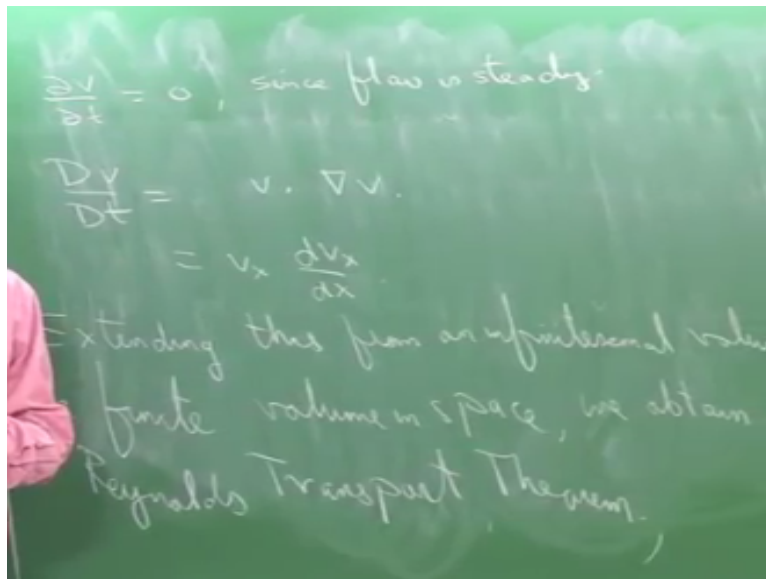 ∂v/∂t = 0, since flow is steady.
Dv/Dt = v. ∇v.
= vₓ dvₓ/dx
Extending this from an infinitesimal
finite volume in space, we obtain
Reynolds Transport Theorem,